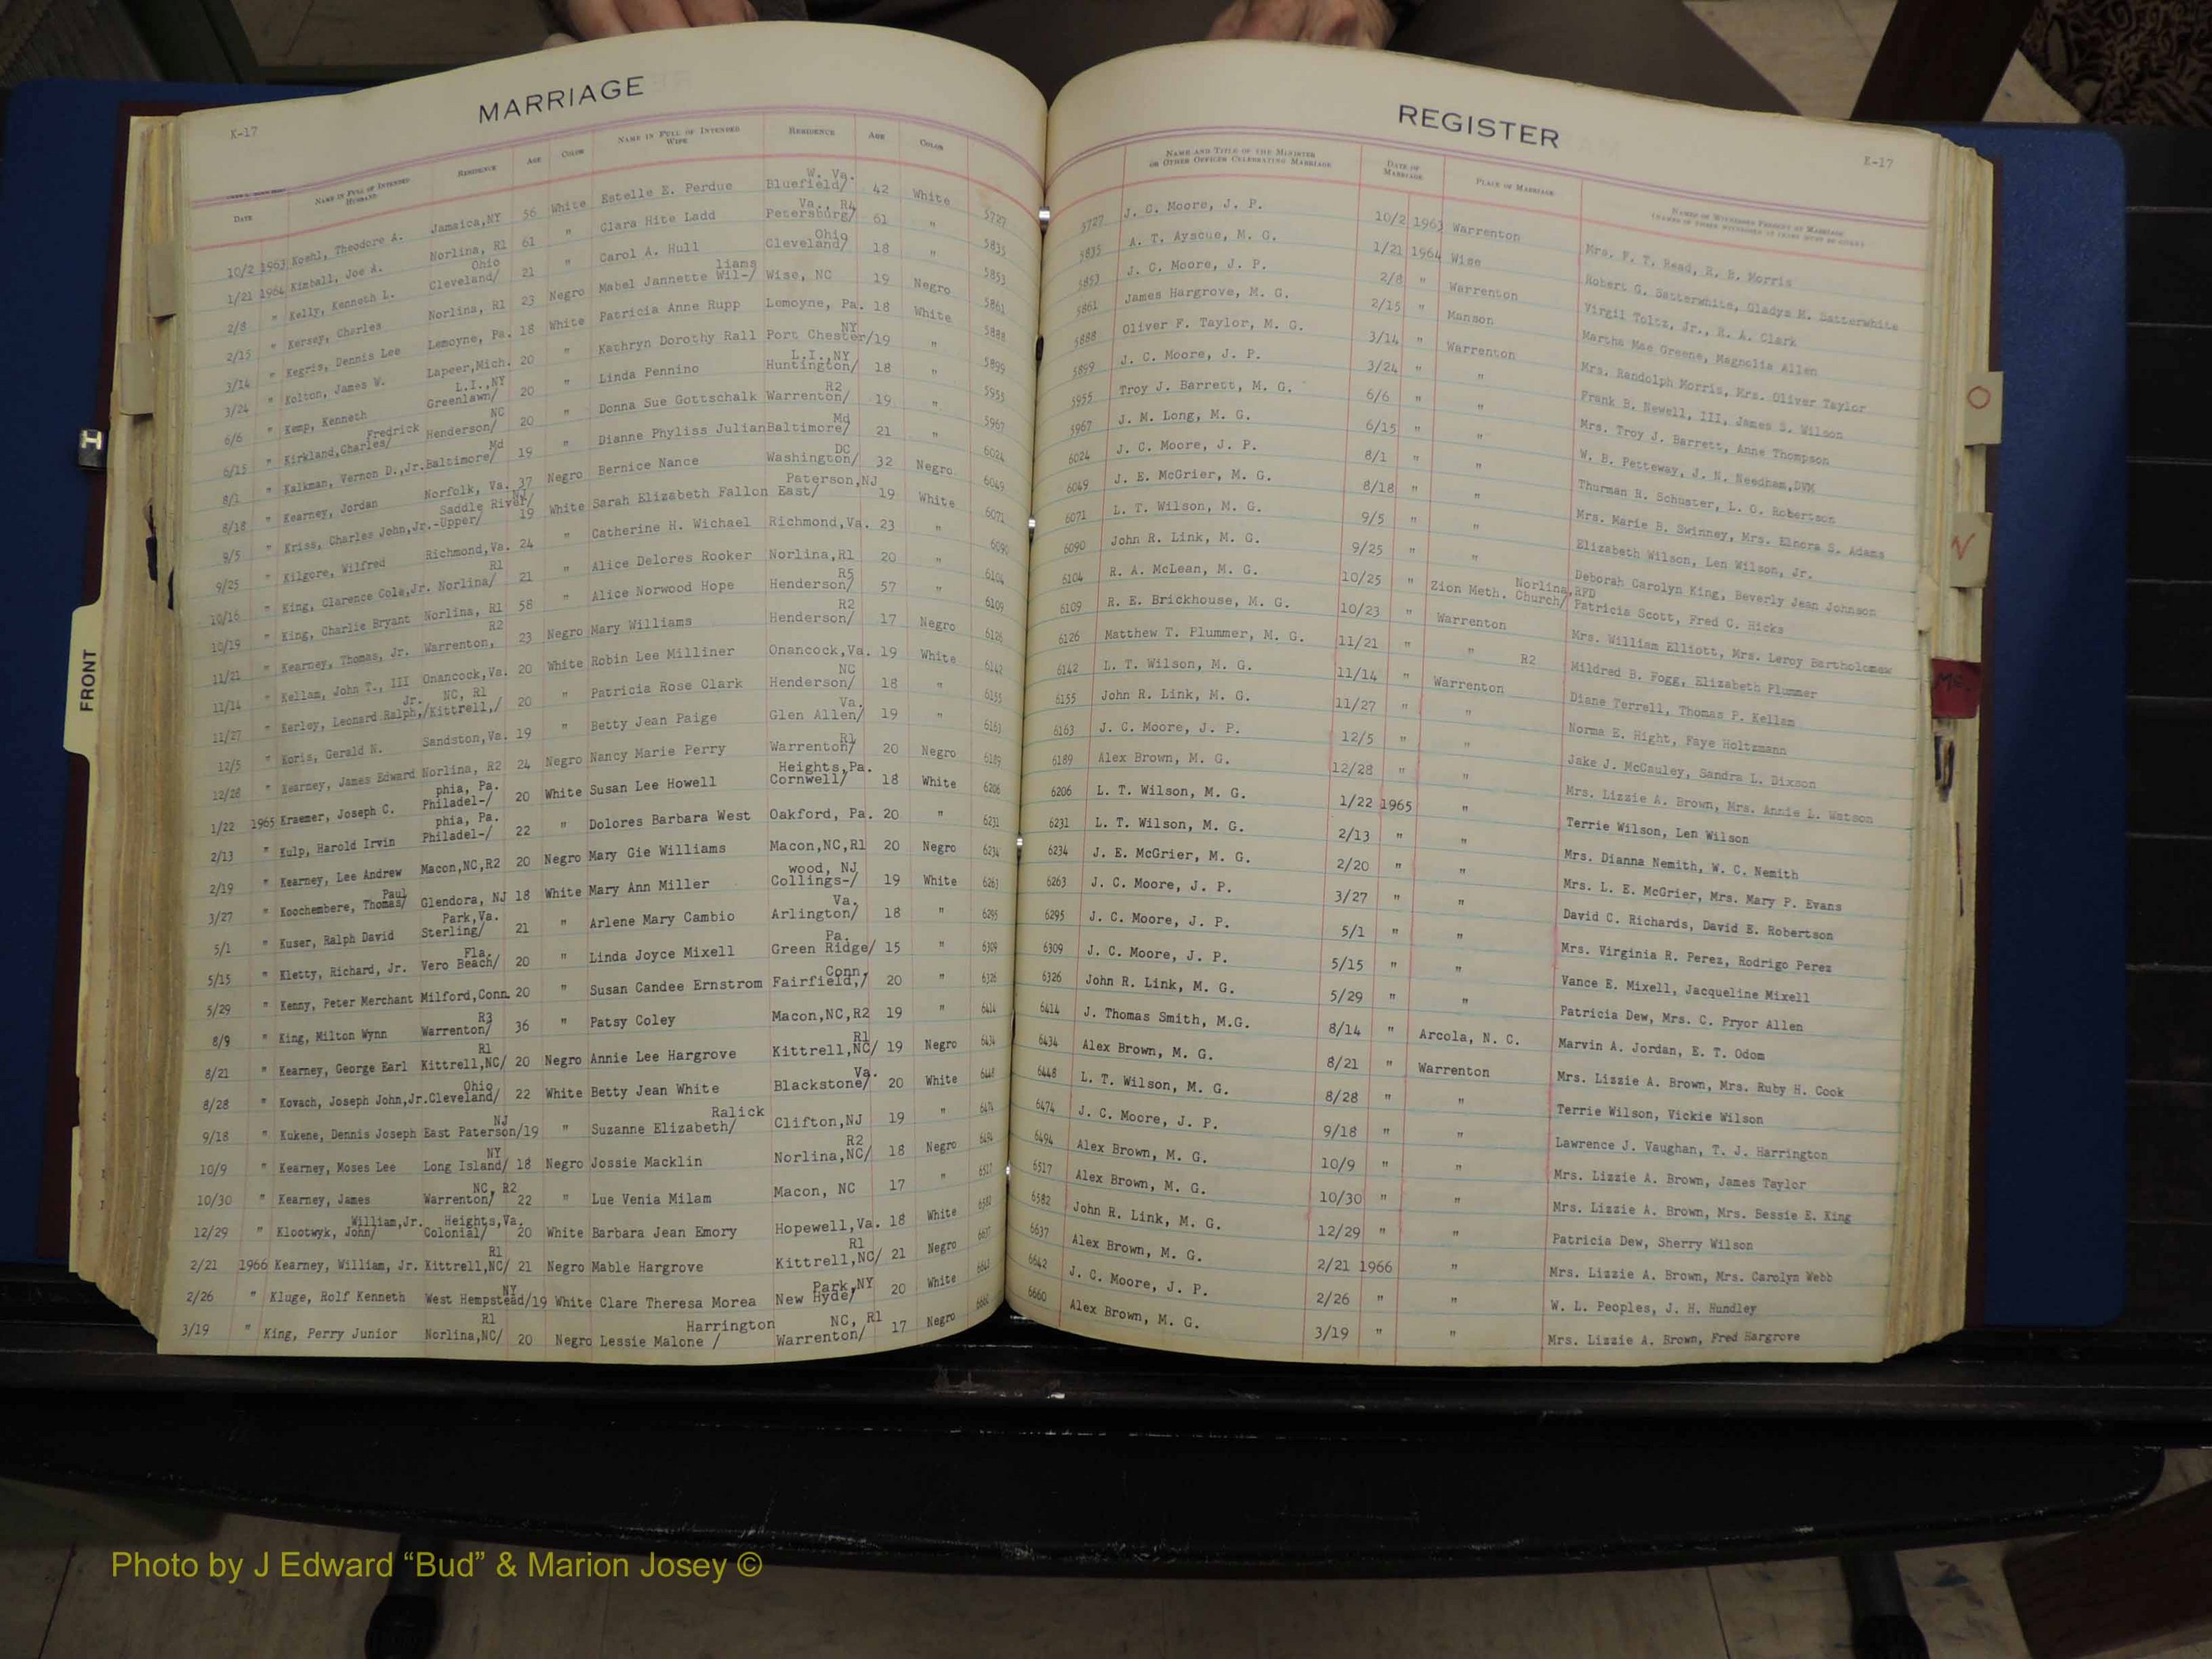 MARRIAGE
K-17
DATE NAME IN FULL OF INTENDED HUSBAND RESIDENCE AGE COLOR NAME IN FULL OF INTENDED WIFE RESIDENCE AGE COLOR
10/2 1963 Koehl, Theodore A. Jamaica,NY 56 White Estelle E. Perdue Bluefield/ W. Va. 42 White 5727
1/21 1964 Kimball, Joe A. Norlina, R1 61 " Clara Hite Ladd Petersburg/ Va., R4 61 " 5835
2/8 " Kelly, Kenneth L. Cleveland/ Ohio 21 " Carol A. Hull Cleveland/ Ohio 18 " 5853
2/15 " Kersey, Charles Norlina, R1 23 Negro Mabel Jannette Wil-/ liams Wise, NC 19 Negro 5861
3/14 " Kegris, Dennis Lee Lemoyne, Pa. 18 White Patricia Anne Rupp Lemoyne, Pa. 18 White 5888
3/24 " Kolton, James W. Lapeer,Mich. 20 " Kathryn Dorothy Rall Port Chester/ NY 19 " 5899
6/6 " Kemp, Kenneth Greenlawn/ L.I.,NY 20 " Linda Pennino Huntington/ L.I.,NY 18 " 5955
6/15 " Kirkland,Charles/ Fredrick Henderson/ NC 20 " Donna Sue Gottschalk Warrenton/ R2 19 " 5967
8/1 " Kalkman, Vernon D.,Jr. Baltimore/ Md 19 " Dianne Phyliss Julian Baltimore/ Md 21 " 6024
8/18 " Kearney, Jordan Norfolk, Va. 37 Negro Bernice Nance Washington/ DC 32 Negro 6049
9/5 " Kriss, Charles John,Jr.-Upper/ Saddle River/ NJ 19 White Sarah Elizabeth Fallon East/ Paterson,NJ 19 White 6071
9/25 " Kilgore, Wilfred Richmond,Va. 24 " Catherine H. Wichael Richmond,Va. 23 " 6090
10/16 " King, Clarence Cole,Jr. Norlina/ R1 21 " Alice Delores Rooker Norlina,R1 20 " 6104
10/19 " King, Charlie Bryant Norlina, R1 58 " Alice Norwood Hope Henderson/ R5 57 " 6109
11/21 " Kearney, Thomas, Jr. Warrenton, R2 23 Negro Mary Williams Henderson/ R2 17 Negro 6126
11/14 " Kellam, John T., III Onancock,Va. 20 White Robin Lee Milliner Onancock,Va. 19 White 6142
11/27 " Kerley, Leonard Ralph,/ Jr. Kittrell,/ NC, R1 20 " Patricia Rose Clark Henderson/ NC 18 " 6155
12/5 " Koris, Gerald N. Sandston,Va. 19 " Betty Jean Paige Glen Allen/ Va. 19 " 6163
12/28 " Kearney, James Edward Norlina, R2 24 Negro Nancy Marie Perry Warrenton/ R1 20 Negro 6189
1/22 1965 Kraemer, Joseph C. Philadel-/ phia, Pa. 20 White Susan Lee Howell Cornwell/ Heights,Pa. 18 White 6206
2/13 " Kulp, Harold Irvin Philadel-/ phia, Pa. 22 " Dolores Barbara West Oakford, Pa. 20 " 6231
2/19 " Kearney, Lee Andrew Macon,NC,R2 20 Negro Mary Gie Williams Macon,NC,R1 20 Negro 6234
3/27 " Koochembere, Thomas/ Paul Glendora, NJ 18 White Mary Ann Miller Collings-/ wood, NJ 19 White 6263
5/1 " Kuser, Ralph David Sterling/ Park,Va. 21 " Arlene Mary Cambio Arlington/ Va. 18 " 6295
5/15 " Kletty, Richard, Jr. Vero Beach/ Fla. 20 " Linda Joyce Mixell Green Ridge/ Pa. 15 " 6309
5/29 " Kenny, Peter Merchant Milford,Conn. 20 " Susan Candee Ernstrom Fairfield,/ Conn. 20 " 6326
8/9 " King, Milton Wynn Warrenton/ R3 36 " Patsy Coley Macon,NC,R2 19 " 6414
8/21 " Kearney, George Earl Kittrell,NC/ R1 20 Negro Annie Lee Hargrove Kittrell,NC/ R1 19 Negro 6434
8/28 " Kovach, Joseph John,Jr. Cleveland/ Ohio 22 White Betty Jean White Blackstone/ Va. 20 White 6448
9/18 " Kukene, Dennis Joseph East Paterson/ NJ 19 " Suzanne Elizabeth/ Ralick Clifton,NJ 19 " 6474
10/9 " Kearney, Moses Lee Long Island/ NY 18 Negro Jossie Macklin Norlina,NC/ R2 18 Negro 6494
10/30 " Kearney, James Warrenton/ NC, R2 22 " Lue Venia Milam Macon, NC 17 " 6517
12/29 " Klootwyk, John/ William,Jr. Colonial/ Heights,Va. 20 White Barbara Jean Emory Hopewell,Va. 18 White 6582
2/21 1966 Kearney, William, Jr. Kittrell,NC/ R1 21 Negro Mable Hargrove Kittrell,NC/ R1 21 Negro 6637
2/26 " Kluge, Rolf Kenneth West Hempstead/ NY 19 White Clare Theresa Morea New Hyde/ Park,NY 20 White 6642
3/19 " King, Perry Junior Norlina,NC/ R1 20 Negro Lessie Malone / Harrington Warrenton/ NC, R1 17 Negro 6660
REGISTER
K-17
NAME AND TITLE OF THE MINISTER OR OTHER OFFICER CELEBRATING MARRIAGE DATE OF MARRIAGE PLACE OF MARRIAGE NAMES OF WITNESSES PRESENT AT MARRIAGE
5727 J. C. Moore, J. P. 10/2 1963 Warrenton Mrs. F. T. Read, R. B. Morris
5835 A. T. Ayscue, M. G. 1/21 1964 Wise Robert G. Satterwhite, Gladys H. Satterwhite
5853 J. C. Moore, J. P. 2/8 " Warrenton Virgil Toltz, Jr., R. A. Clark
5861 James Hargrove, M. G. 2/15 " Manson Martha Mae Greene, Magnolia Allen
5888 Oliver F. Taylor, M. G. 3/14 " Warrenton Mrs. Randolph Morris, Mrs. Oliver Taylor
5899 J. C. Moore, J. P. 3/24 " " Frank B. Newell, III, James S. Wilson
5955 Troy J. Barrett, M. G. 6/6 " " Mrs. Troy J. Barrett, Anne Thompson
5967 J. M. Long, M. G. 6/15 " " W. B. Petteway, J. N. Needham,DVM
6024 J. C. Moore, J. P. 8/1 " " Thurman R. Schuster, L. O. Robertson
6049 J. E. McGrier, M. G. 8/18 " " Mrs. Marie B. Swinney, Mrs. Elnora S. Adams
6071 L. T. Wilson, M. G. 9/5 " " Elizabeth Wilson, Len Wilson, Jr.
6090 John R. Link, M. G. 9/25 " " Deborah Carolyn King, Beverly Jean Johnson
6104 R. A. McLean, M. G. 10/25 " Zion Meth. Church/ Norlina,RFD Patricia Scott, Fred C. Hicks
6109 R. E. Brickhouse, M. G. 10/23 " Warrenton Mrs. William Elliott, Mrs. Leroy Bartholomew
6126 Matthew T. Plummer, M. G. 11/21 " " R2 Mildred B. Fogg, Elizabeth Plummer
6142 L. T. Wilson, M. G. 11/14 " Warrenton Diane Terrell, Thomas P. Kellam
6155 John R. Link, M. G. 11/27 " " Norma E. Hight, Faye Holtzmann
6163 J. C. Moore, J. P. 12/5 " " Jake J. McCauley, Sandra L. Dixson
6189 Alex Brown, M. G. 12/28 " " Mrs. Lizzie A. Brown, Mrs. Annie L. Watson
6206 L. T. Wilson, M. G. 1/22 1965 " Terrie Wilson, Len Wilson
6231 L. T. Wilson, M. G. 2/13 " " Mrs. Dianna Nemith, W. C. Nemith
6234 J. E. McGrier, M. G. 2/20 " " Mrs. L. E. McGrier, Mrs. Mary P. Evans
6263 J. C. Moore, J. P. 3/27 " " David C. Richards, David E. Robertson
6295 J. C. Moore, J. P. 5/1 " " Mrs. Virginia R. Perez, Rodrigo Perez
6309 J. C. Moore, J. P. 5/15 " " Vance E. Mixell, Jacqueline Mixell
6326 John R. Link, M. G. 5/29 " " Patricia Dew, Mrs. C. Pryor Allen
6414 J. Thomas Smith, M.G. 8/14 " Arcola, N. C. Marvin A. Jordan, E. T. Odom
6434 Alex Brown, M. G. 8/21 " Warrenton Mrs. Lizzie A. Brown, Mrs. Ruby H. Cook
6448 L. T. Wilson, M. G. 8/28 " " Terrie Wilson, Vickie Wilson
6474 J. C. Moore, J. P. 9/18 " " Lawrence J. Vaughan, T. J. Harrington
6494 Alex Brown, M. G. 10/9 " " Mrs. Lizzie A. Brown, James Taylor
6517 Alex Brown, M. G. 10/30 " " Mrs. Lizzie A. Brown, Mrs. Bessie E. King
6582 John R. Link, M. G. 12/29 " " Patricia Dew, Sherry Wilson
6637 Alex Brown, M. G. 2/21 1966 " Mrs. Lizzie A. Brown, Mrs. Carolyn Webb
6642 J. C. Moore, J. P. 2/26 " " W. L. Peoples, J. H. Hundley
6660 Alex Brown, M. G. 3/19 " " Mrs. Lizzie A. Brown, Fred Hargrove
FRONT
O
N
Mc
Photo by J Edward “Bud” & Marion Josey ©